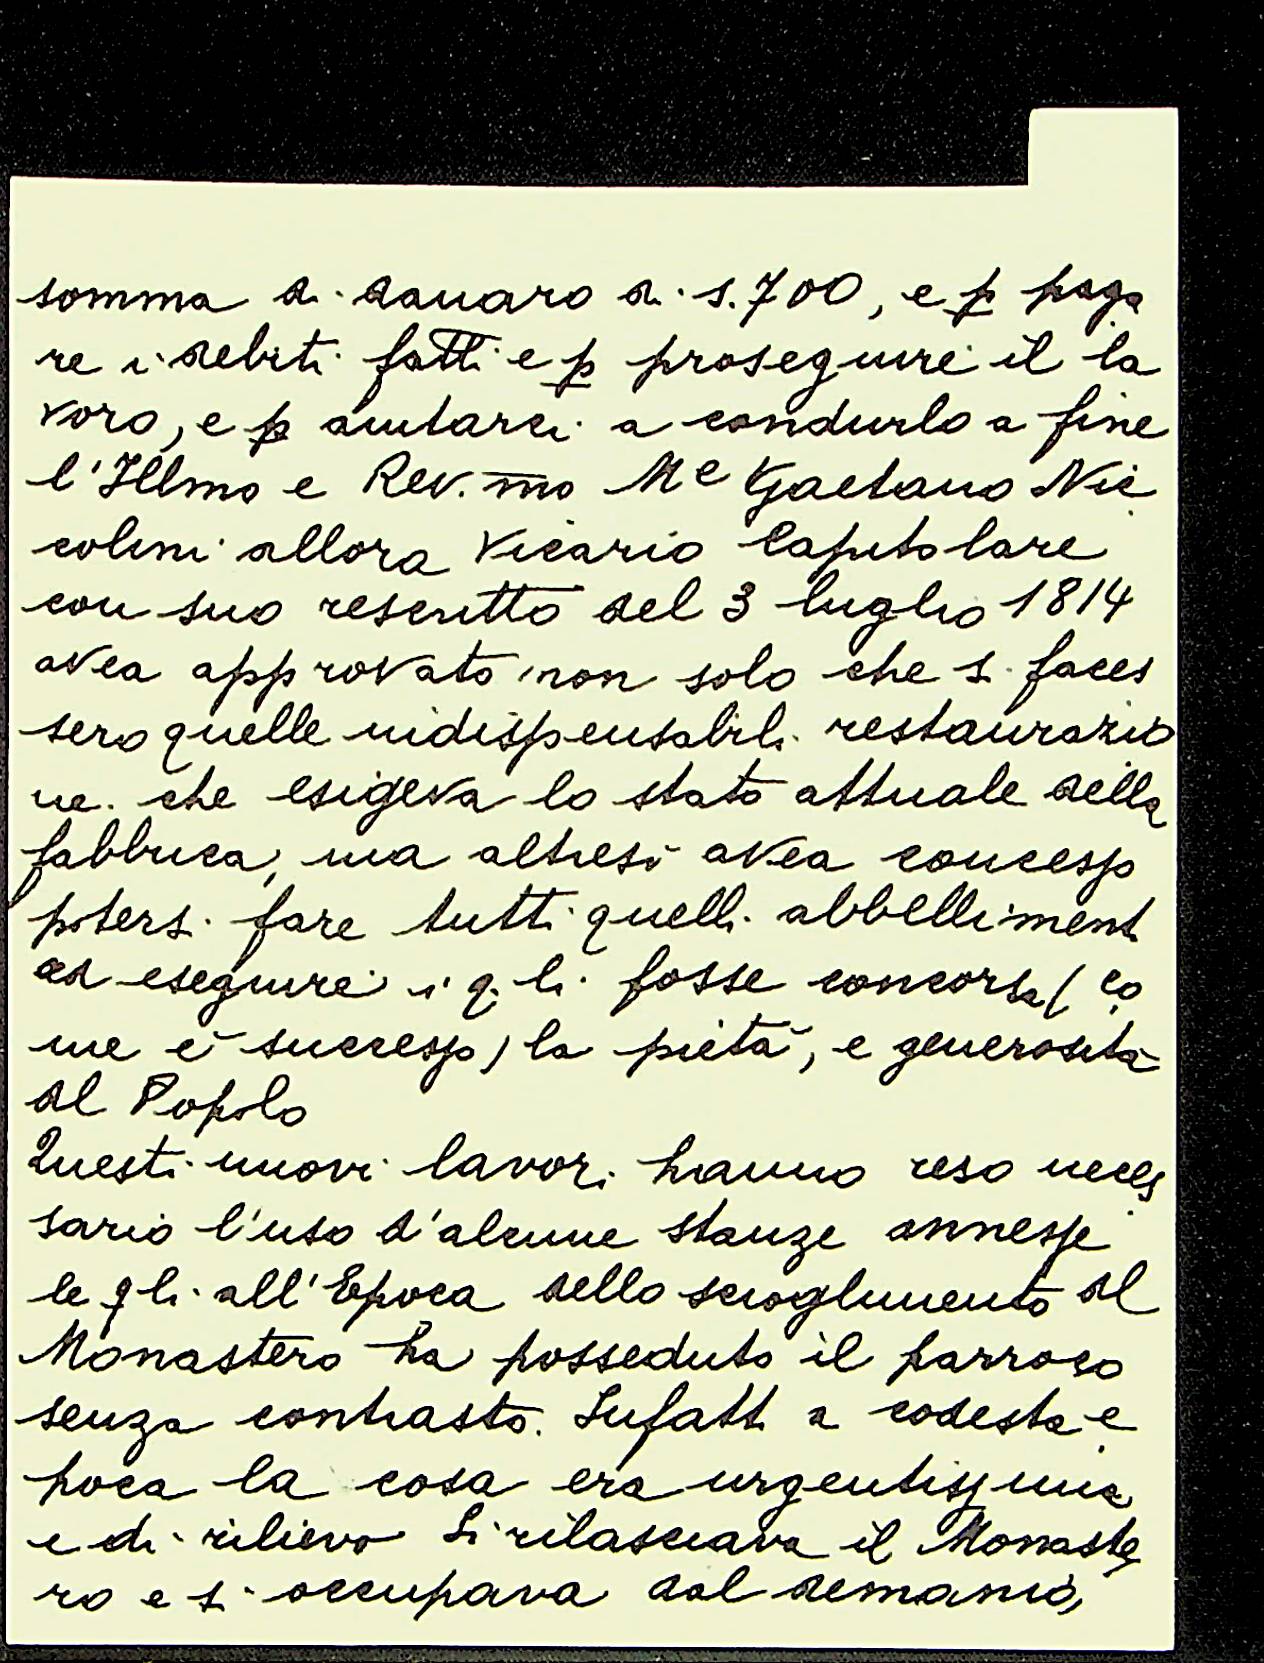 somma di danaro di s. 700, e p paga
re i debiti fatti e p proseguire il la
voro, e p aiutarci a condurlo a fine
l'Illmo e Rev.mo Me Gaetano Nic
colini allora Vicario Capitolare
con suo rescritto del 3 luglio 1814
avea approvato non solo che si faces
sero quelle indispensabili restaurazio
ne. che esigeva lo stato attuale della
fabbrica, ma altresì avea concesso
potersi fare tutti quelli abbellimenti
ad eseguire i q.li fosse concorsa (co
me è successo) la pietà, e generosità
dl Popolo
Questi nuovi lavori hanno reso neces
sario l'uso d'alcune stanze annesse
le qli all'Epoca dello scioglimento dl
Monastero ha posseduto il parroco
senza contrasto. Infatti a codesta e
poca la cosa era urgentissima
e di rilievo Si rilasciava il Monaste
ro e si occupava dal demanio,